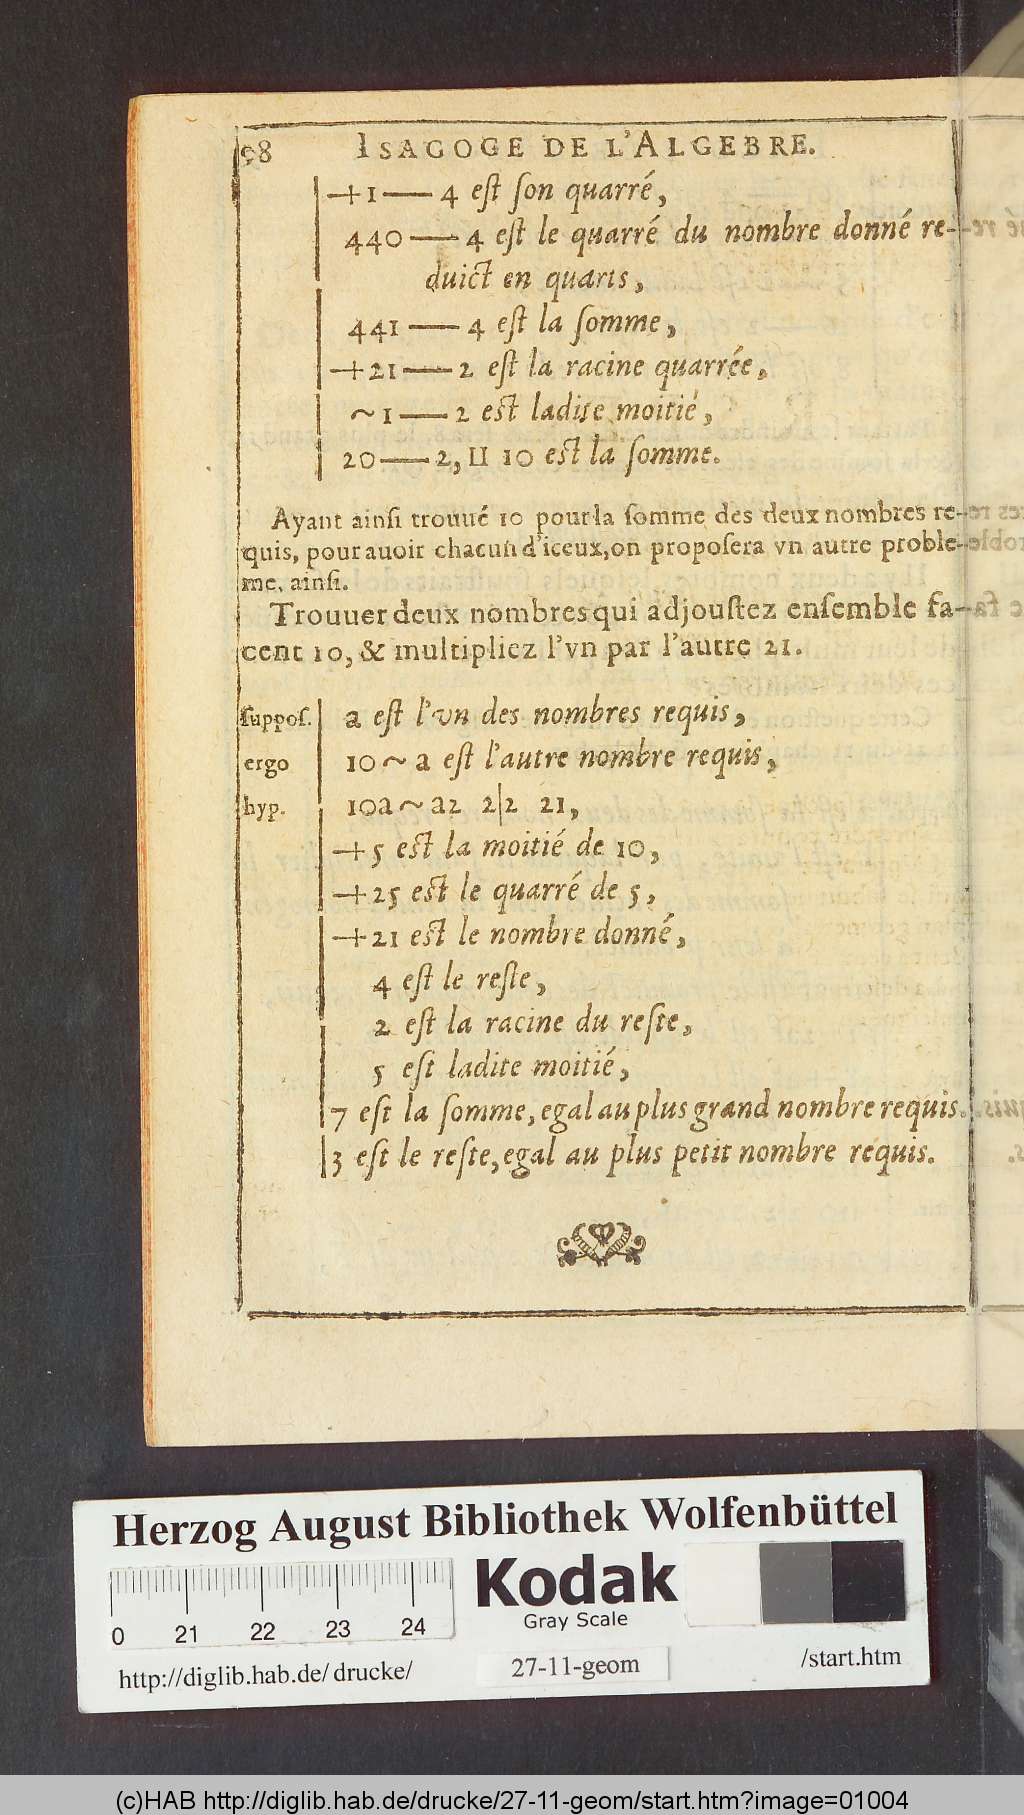 98 ISAGOGE DE L'ALGEBRE.
+1 — 4 eſt ſon quarré,
440 — 4 eſt le quarré du nombre donné re-
duict en quarts,
441 — 4 eſt la ſomme,
+21 — 2 eſt la racine quarrée,
~1 — 2 eſt ladite moitié,
20 — 2, II 10 eſt la ſomme.
Ayant ainſi trouué 10 pour la ſomme des deux nombres re-
quis, pour auoir chacun d'iceux, on propoſera vn autre proble-
me, ainſi.
Trouuer deux nombres qui adjouſtez enſemble fa-
cent 10, & multipliez l'vn par l'autre 21.
ſuppoſ. a eſt l'vn des nombres requis,
ergo 10 ~ a eſt l'autre nombre requis,
hyp. 10a ~ a2 2|2 21,
+5 eſt la moitié de 10,
+25 eſt le quarré de 5,
+21 eſt le nombre donné,
4 eſt le reſte,
2 eſt la racine du reſte,
5 eſt ladite moitié,
7 eſt la ſomme, egal au plus grand nombre requis.
3 eſt le reſte, egal au plus petit nombre requis.
Herzog August Bibliothek Wolfenbüttel
Kodak
Gray Scale
0 21 22 23 24
http://diglib.hab.de/drucke/ 27-11-geom /start.htm
(c)HAB http://diglib.hab.de/drucke/27-11-geom/start.htm?image=01004